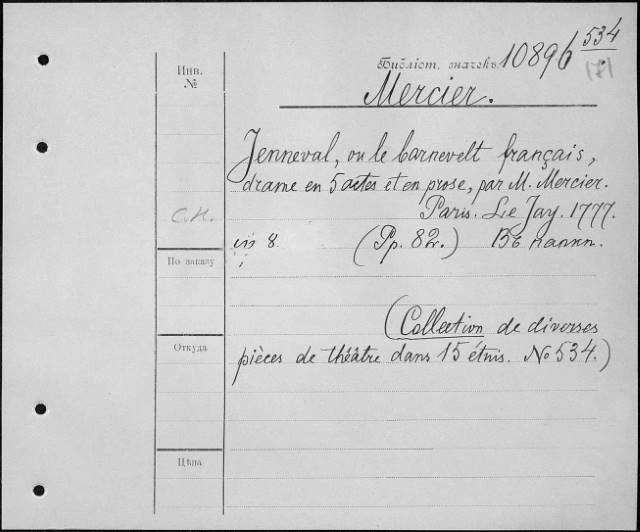 534
Инв. №
Библіот. значекъ 10896
171
Mercier.
Jenneval, ou le barnevelt français,
drame en 5 actes et en prose, par M. Mercier.
С.Н.
Paris. Le Jay. 1777.
in 8. (Pp. 82.) Въ папкѣ.
По заказу
(Collection de diverses
Откуда
pièces de théâtre dans 15 étuis. No 534.)
Цѣна